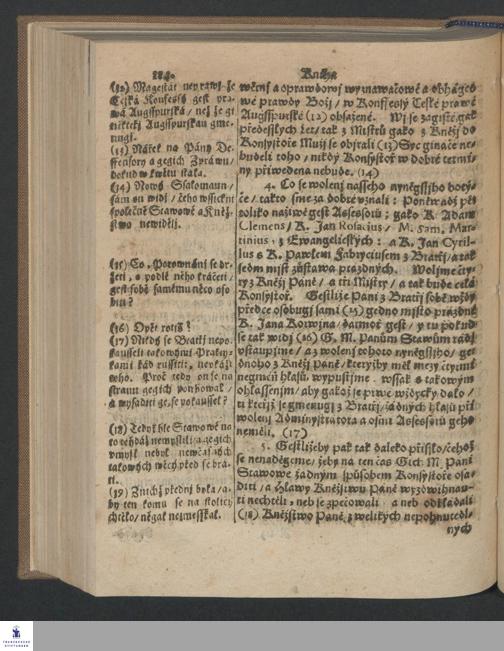 184. Kniha
(12) Magestát neyrawj že
Česká Konfessý gest pra-
wá Augšpurská / než že gi
někteřj Augšpurskau gme-
nugj.
(13) Nářek na Pány De-
ffensory a gegich Zpráwu /
dokud w kwětu stála.
(14) Nowý Ssalomaun /
sám on widj / čeho wssickni
společně Stawowé a Kněž-
stwo newiděli.
(15) Co, Porownánj se dr-
žeti, a podlé něho kráčeti /
gest sobě samému něco oso-
biti?
(16) Opět totiž?
(17) Nikdý se Bratřj nepo-
kausseli takowými Prakty-
kami řád russiti, neukáží
toho. Proč tedy on se na
stranu gegich pochowal /
a wysaditi ge, se pokaussel?
(18) Tehdý kde Stawowé na
to tehdáž nemyslili / a gegich
vmysl nebyl, new
takowých wěcý před se brá-
ti.
(19) Zničiž přednj buka / a-
by ten komu se na stolicy
chtělo / něgak nezmesskal.
wěrnj a oprawdowj wyznawačowé a obhágco-
wé prawdy Božj / w Konffessý České prawé
Augšpurské (12) obsažené. Mj se zagisté gak
předesslých Let / tak z Mistrů gako z Kněžj do
Konsystoře Muži se objrali (13) Syc gináče ne-
budeli toho / nikdý Konsystoř w dobré termi-
ny přiwedena nebude. (14)
4. Co se wolenj nasseho nyněgssjho dotý-
če / takto sme za dobré vznali: Poněwadž při
toliko naživě gest Assessorů; gako K. Adam
Clemens / K. Jan Rosacius / M. Sam. Mar-
tinius, z Ewangelických: a K. Jan Cyril-
lus s K. Pawlem Fabryciusem z Bratřj / a tak
sedm mjst zůstawá prázdných. Wolme čty-
ry z Kněžj Páně / a tři Mistry / a tak bude celá
Konsystoř. Gestliže Páni z Bratřj sobě wždy
předce osobugj sami (15) gedno mjsto prázdné
K. Jana Korwina / darmoť gest / y tu pokud
se tak widj (16) G. M. Panům Stawům rádi
vstaupjme / a z wolenj tohoto nyněgssjho / ge-
dnoho z Kněžj Páně / kterýžby měl mezy čtyrmi
neymeń hlasů / wypustjme. wssak s takowým
ohlássenjm / aby gakož se prwé wždycky dálo /
ti kteřjž se gmenugj z Bratřj / žádných hlasů při
wolenj Administrátora a osmi Assessorů geho
neměli. (17)
5. Gestližeby pak tak daleko přisslo / čehož
se nenaděgeme / žeby na ten čas Gich M. Páni
Stawowé žádným způsobem Konsystoře osa-
diti / a Hlawy Kněžstwu Páně wyzdwihnau-
ti nechtěli: neb se zpěčowali: a neb odkládali
(18) Kněžstwo Páně, z welikých nepohnutedl-
nych